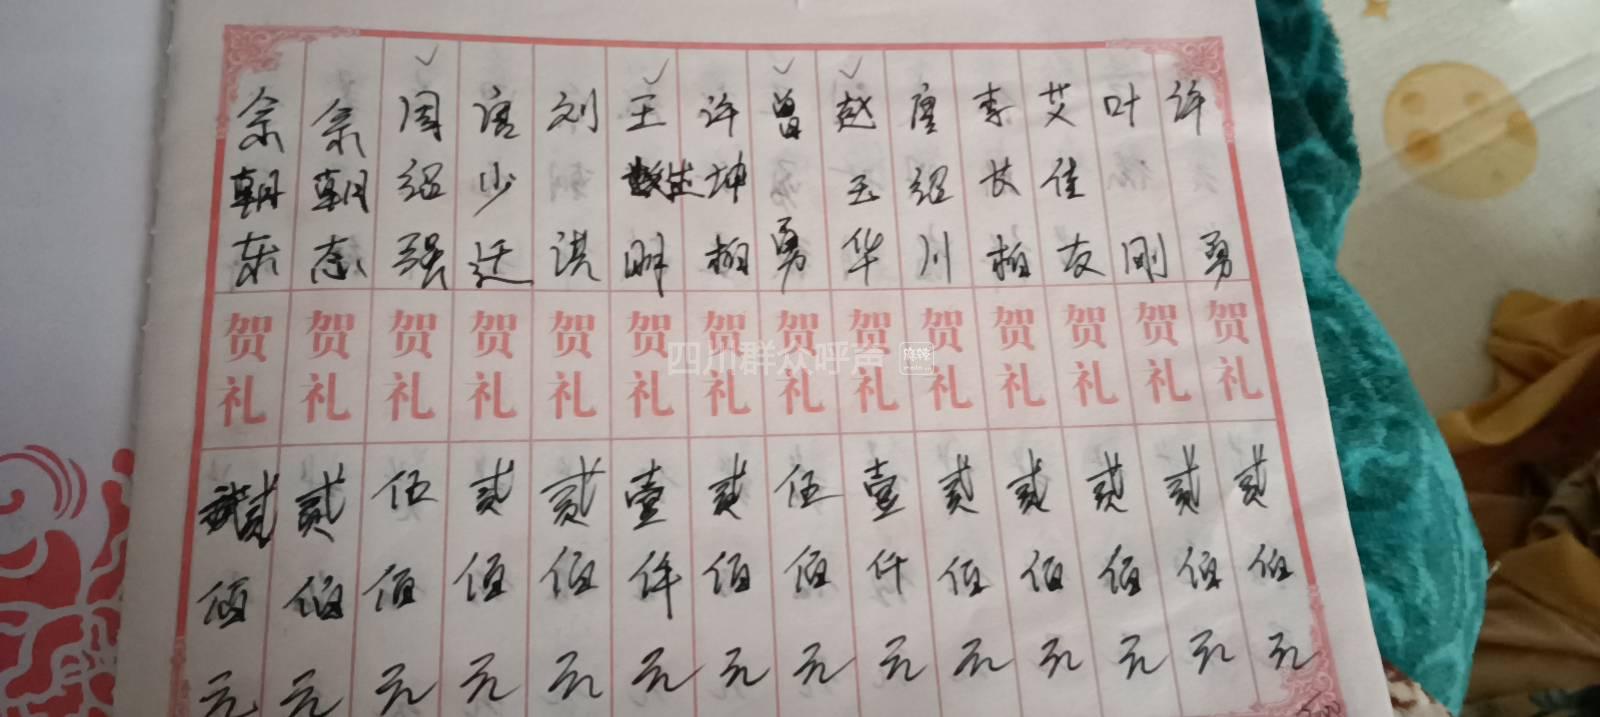 许勇 贺礼 贰佰元
叶刚 贺礼 贰佰元
艾佳友 贺礼 贰佰元
李长柏 贺礼 贰佰元
唐绍川 贺礼 贰佰元
赵玉华 贺礼 壹仟元
曾勇 贺礼 伍佰元
许坤柏 贺礼 贰佰元
王明 贺礼 壹仟元
刘洪 贺礼 贰佰元
唐少迁 贺礼 贰佰元
周绍强 贺礼 伍佰元
余朝志 贺礼 贰佰元
余朝东 贺礼 贰佰元
四川群众呼声